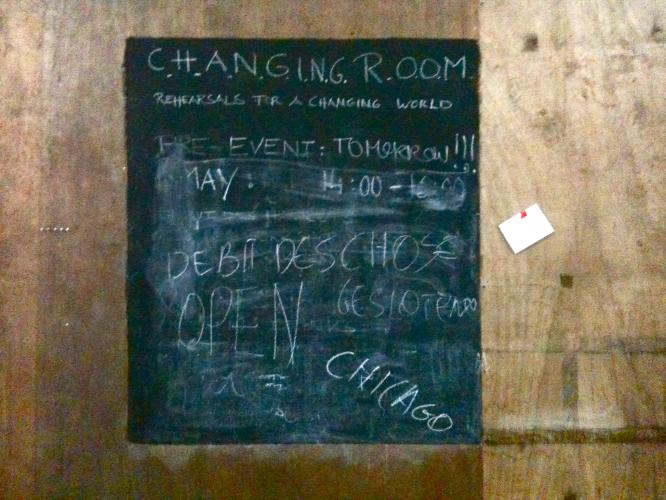 C.H.A.N.G.I.N.G. R.O.O.M.
REHEARSALS FOR A CHANGING WORLD
PRE-EVENT: TOMORROW!!!
MAY : 14:00 - 16:00
DEBIT DES CHOSE
OPEN GESLOTEN
CHICAGO